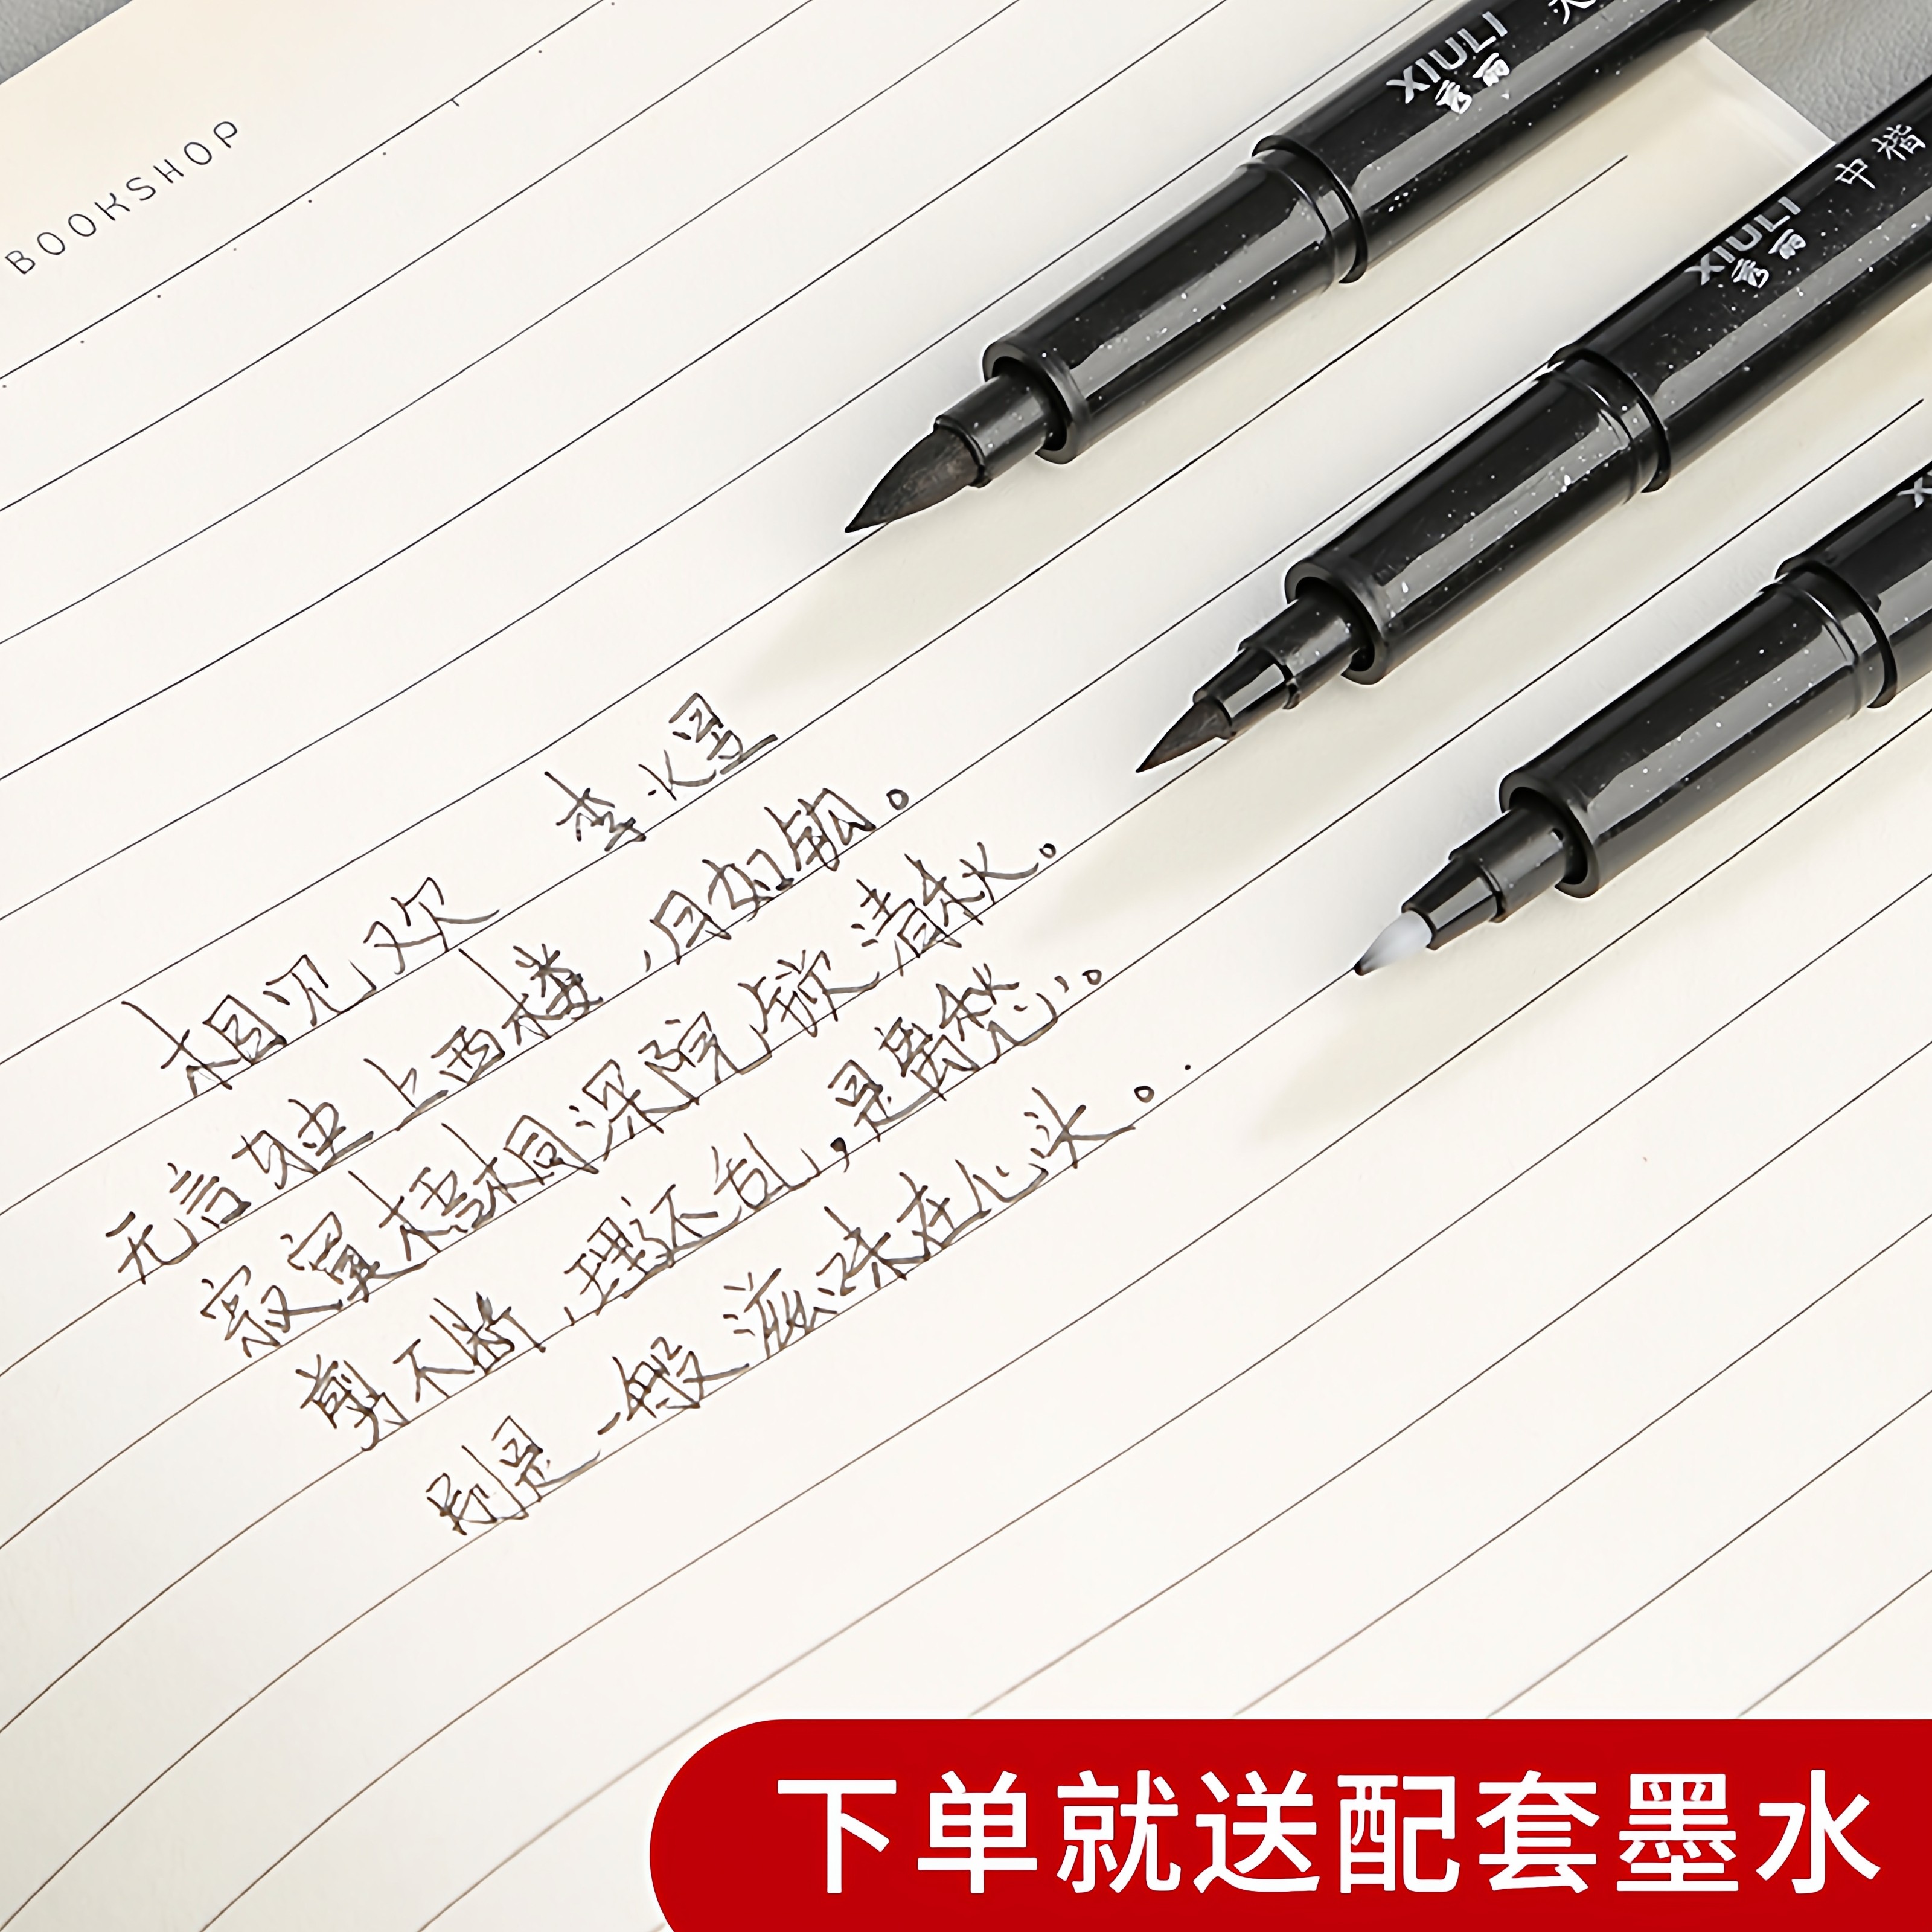 BOOKSHOP
XIULI
秀丽
XIULI
秀丽
中楷
李煜
相见欢
无言独上西楼，月如钩。
寂寞梧桐深院锁清秋。
剪不断，理还乱，是离愁。
别是一般滋味在心头。
下单就送配套墨水